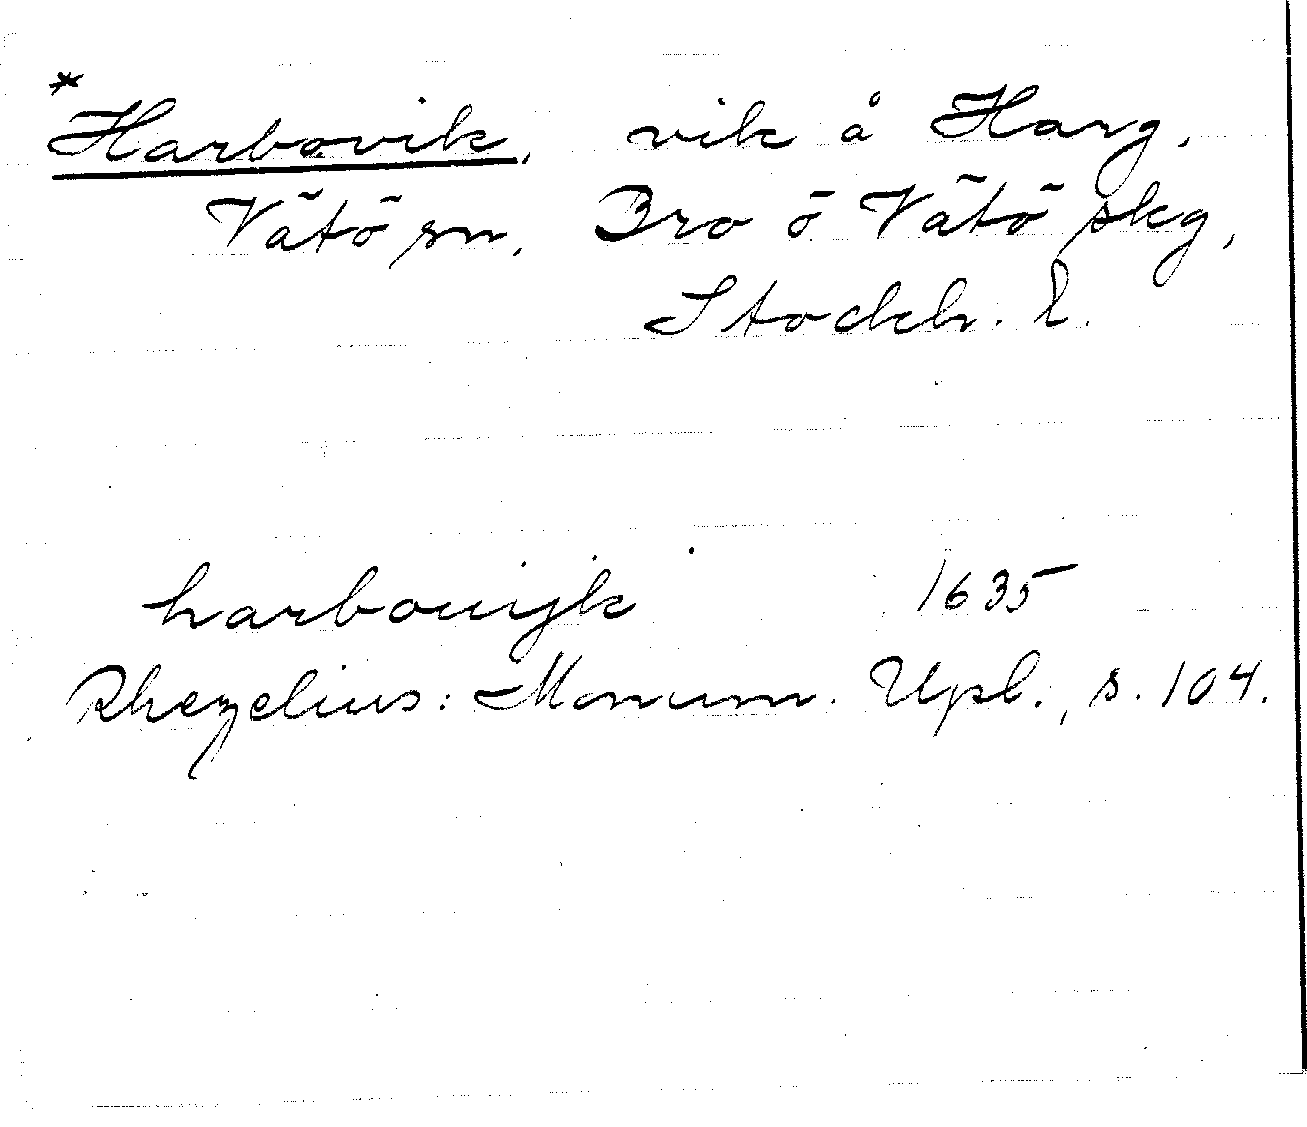 * Harbovik, vik å Harg,
Vätö sn, Bro o Vätö skg,
Stockh. l.
harbouijk 1635
Rhezelius: Monum. Upl., s. 104.